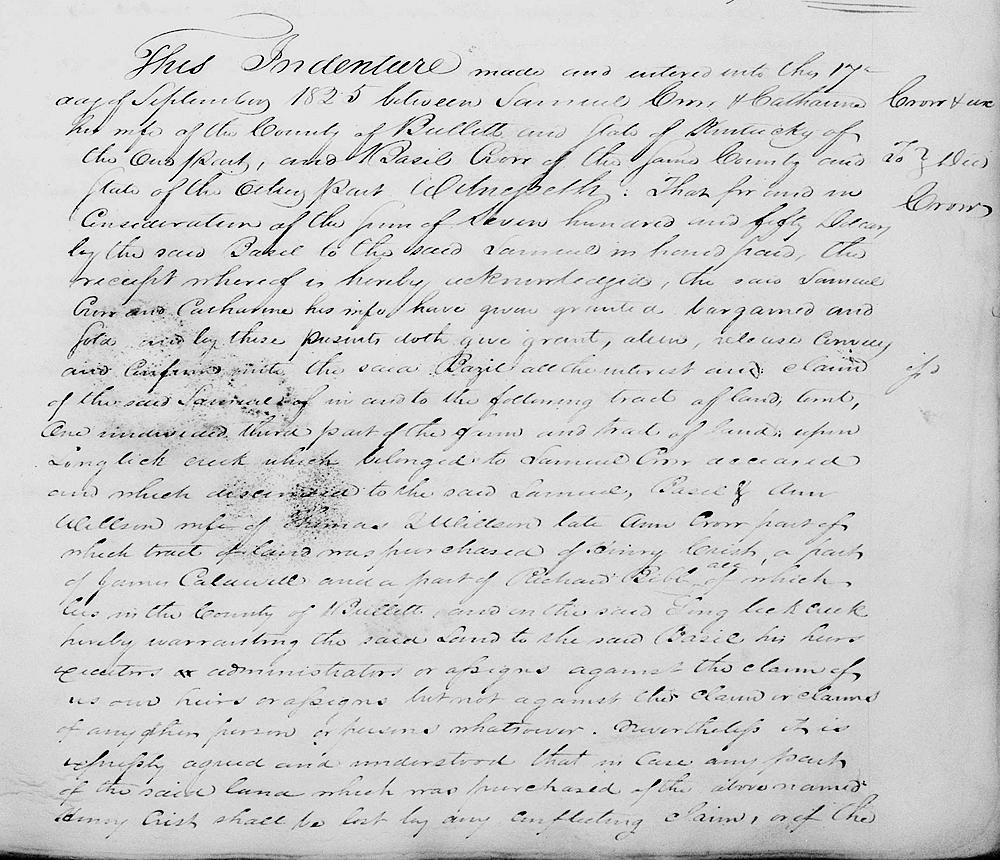 This Indenture made and entered into this 17th
day of September 1825 between Samuel Crow & Catharine
his wife of the County of Bullitt and State of Kentucky of
the One part, and Basil Crow of the same County and
State of the Other part Witnesseth: That for and in
Consideration of the sum of seven hundred and fifty Dollars
by the said Basil to the said Samuel in hand paid, the
receipt whereof is hereby acknowledged, the said Samuel
Crow and Catharine his wife have given granted bargained and
sold and by these presents doth give grant, alien, release Convey
and Confirm unto the said Bazil all the interest and claim
of the said Samuel of in and to the following tract of land, towit,
One undivided third part of the farm and tract of land, upon
Long lick creek which belonged to Samuel Crow deceased
and which descended to the said Samuel, Basil & Ann
Willson wife of Thomas Willson late Ann Crow part of
which tract of land was purchased of Henry Crist, a part
of James Caldwell and a part of Richard Bibb all of which
lies in the County of Bullitt and on the said Long lick creek
hereby warranting the said Land to the said Basil his heirs
executors & administrators or assigns against the claim of
us our heirs or assigns but not against the claim or claims
of any other person or persons whatsoever. Nevertheless it is
expressly agreed and understood that in case any part
of the said land which was purchased of the above named
Henry Crist shall be lost by any conflicting claim, or if the
Crow & ux
To } Deed
Crow